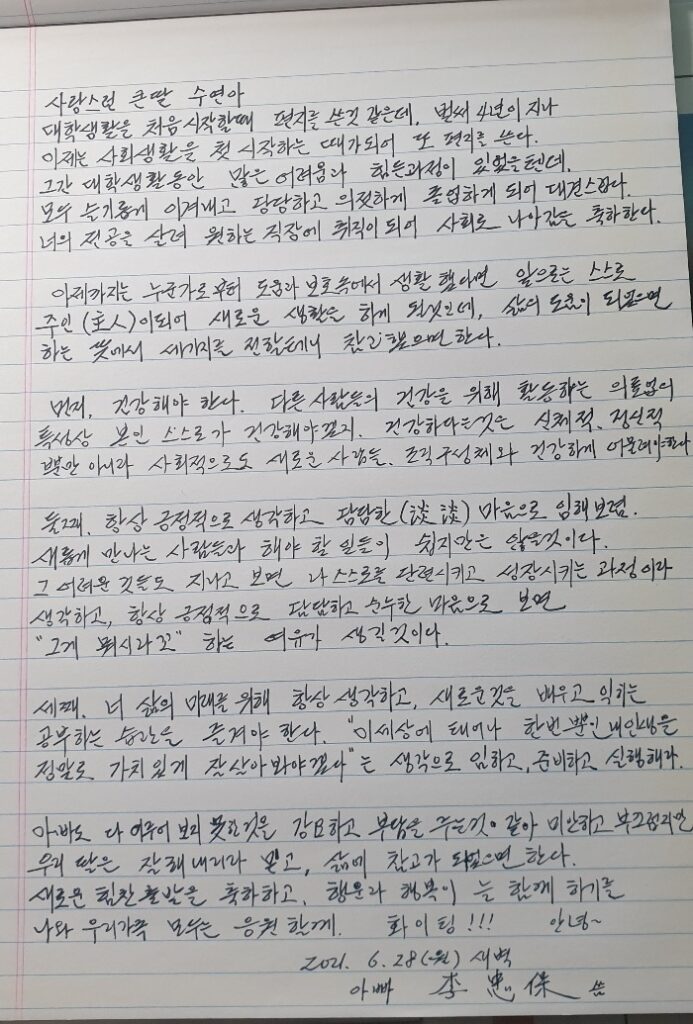 사랑스런 큰딸 수연아
대학생활을 처음 시작할때 편지를 쓴것 같은데, 벌써 4년이 지나
이제는 사회생활을 첫 시작하는 때가되어 또 편지를 쓴다.
그간 대학생활동안 많은 어려움과 힘든과정이 있었을텐데,
모두 슬기롭게 이겨내고 당당하고 의젓하게 졸업하게 되어 대견스럽다.
너의 전공을 살려 원하는 직장에 취직이 되어 사회로 나아감을 축하한다.
이제까지는 누군가로부터 도움과 보호속에서 생활 했다면 앞으로는 스스로
주인(主人)이되어 새로운 생활을 하게 되겠는데, 삶의 도움이 되었으면
하는 뜻에서 세가지를 전할테니 참고했으면 한다.
먼저, 건강해야 한다. 다른사람들의 건강을 위해 활동하는 의료업의
특성상 본인 스스로가 건강해야겠지. 건강하다는것은 신체적, 정신적
뿐만 아니라 사회적으로도 새로운 사람들, 조직구성체와 건강하게 어울려야한다
둘째. 항상 긍정적으로 생각하고 담담한(淡淡) 마음으로 임해보렴.
새롭게 만나는 사람들과 해야 할 일들이 쉽지만은 않을것이다.
그 어려운 것들도 지나고 보면 나스스로를 단련시키고 성장시키는 과정이라
생각하고, 항상 긍정적으로 담담하고 순수한 마음으로 보면
"그게 뭐시라꼬" 하는 여유가 생길것이다.
세째. 너 삶의 미래를 위해 항상 생각하고, 새로운것을 배우고 익히는
공부하는 습관을 즐겨야 한다. "이세상에 태어나 한번뿐인 내인생을
정말로 가치있게 잘살아봐야겠다"는 생각으로 임하고, 준비하고 실행해라.
아빠도 다 이루어 보지 못한것을 강요하고 부담을 주는것이 같아 미안하고 부끄럽지만
우리 딸은 잘해내리라 믿고, 삶에 참고가 되었으면 한다.
새로운 힘찬 출발을 축하하고, 행운과 행복이 늘 함께 하기를
나와 우리가족 모두는 응원할게. 화이팅!!! 안녕~
2021. 6. 28(월) 새벽
아빠 李忠保 씀